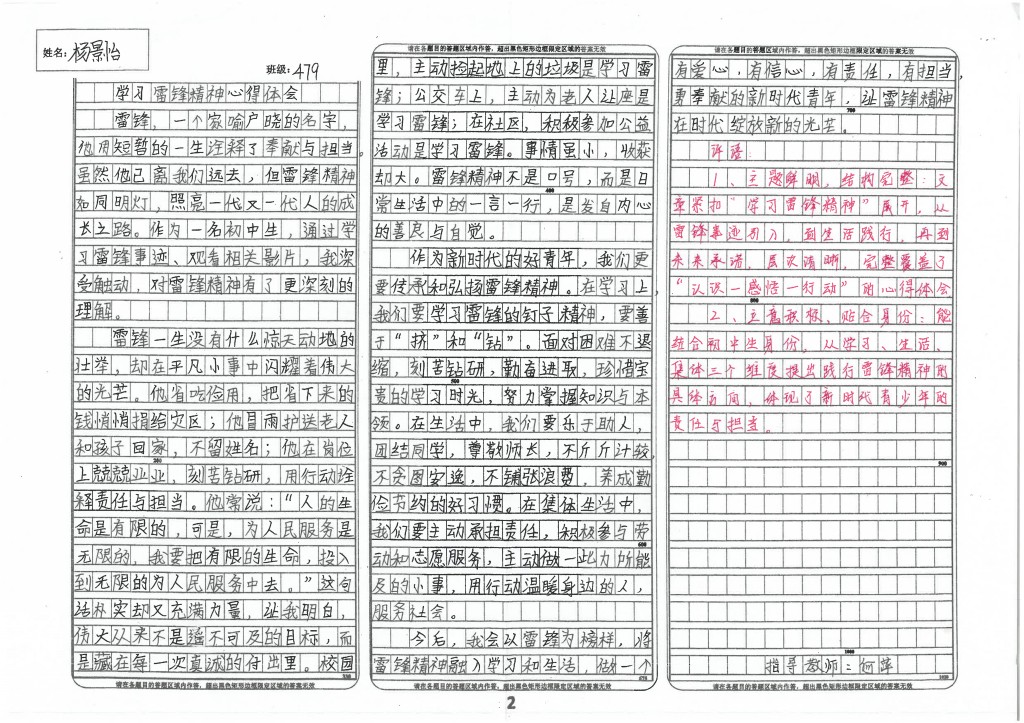 姓名：杨景怡
班级：479
学习雷锋精神心得体会
雷锋，一个家喻户晓的名字，
他用短暂的一生诠释了奉献与担当。
虽然他已离我们远去，但雷锋精神
如同明灯，照亮一代又一代人的成
长之路。作为一名初中生，通过学
习雷锋事迹、观看相关影片，我深
受触动，对雷锋精神有了更深刻的
理解。
雷锋一生没有什么惊天动地的
壮举，却在平凡小事中闪耀着伟大
的光芒。他省吃俭用，把省下来的
钱悄悄捐给灾区；他冒雨护送老人
和孩子回家，不留姓名；他在岗位
上兢兢业业，刻苦钻研，用行动诠
释责任与担当。他常说：“人的生
命是有限的，可是，为人民服务是
无限的，我要把有限的生命，投入
到无限的为人民服务中去。”这句
话朴实却又充满力量，让我明白，
伟大从来不是遥不可及的目标，而
是藏在每一次真诚的付出里。校园
请在各题目的答题区域内作答，超出黑色矩形边框限定区域的答案无效
请在各题目的答题区域内作答，超出黑色矩形边框限定区域的答案无效
里，主动捡起地上的垃圾是学习雷
锋；公交车上，主动为老人让座是
学习雷锋；在社区，积极参加公益
活动是学习雷锋。事情虽小，收获
却大。雷锋精神不是口号，而是日
400
常生活中的一言一行，是发自内心
的善良与自觉。
作为新时代的好青年，我们更
要传承和弘扬雷锋精神。在学习上，
我们要学习雷锋的钉子精神，要善
于“挤”和“钻”。面对困难不退
缩，刻苦钻研，勤奋进取，珍惜宝
500
贵的学习时光，努力掌握知识与本
领。在生活中，我们要乐于助人，
团结同学，尊敬师长，不斤斤计较，
不贪图安逸，不铺张浪费，养成勤
俭节约的好习惯。在集体生活中，
我们要主动承担责任，积极参与劳
600
动和志愿服务，主动做一些力所能
及的小事，用行动温暖身边的人，
服务社会。
今后，我会以雷锋为榜样，将
雷锋精神融入学习和生活，做一个
请在各题目的答题区域内作答，超出黑色矩形边框限定区域的答案无效
请在各题目的答题区域内作答，超出黑色矩形边框限定区域的答案无效
有爱心，有信心，有责任，有担当，
勇奉献的新时代青年，让雷锋精神
700
在时代绽放新的光芒。
评语：
1、主题鲜明，结构完整：文
章紧扣“学习雷锋精神”展开，从
雷锋事迹引入，到生活践行，再到
未来承诺，层次清晰，完整覆盖了
“认识一感悟一行动”的心得体会
800
2、立意积极，贴合身份：能
结合初中生身份，从学习、生活、
集体三个维度提出践行雷锋精神的
具体方向，体现了新时代青少年的
责任与担当。
900
1000
指导教师：何萍
请在各题目的答题区域内作答，超出黑色矩形边框限定区域的答案无效
2